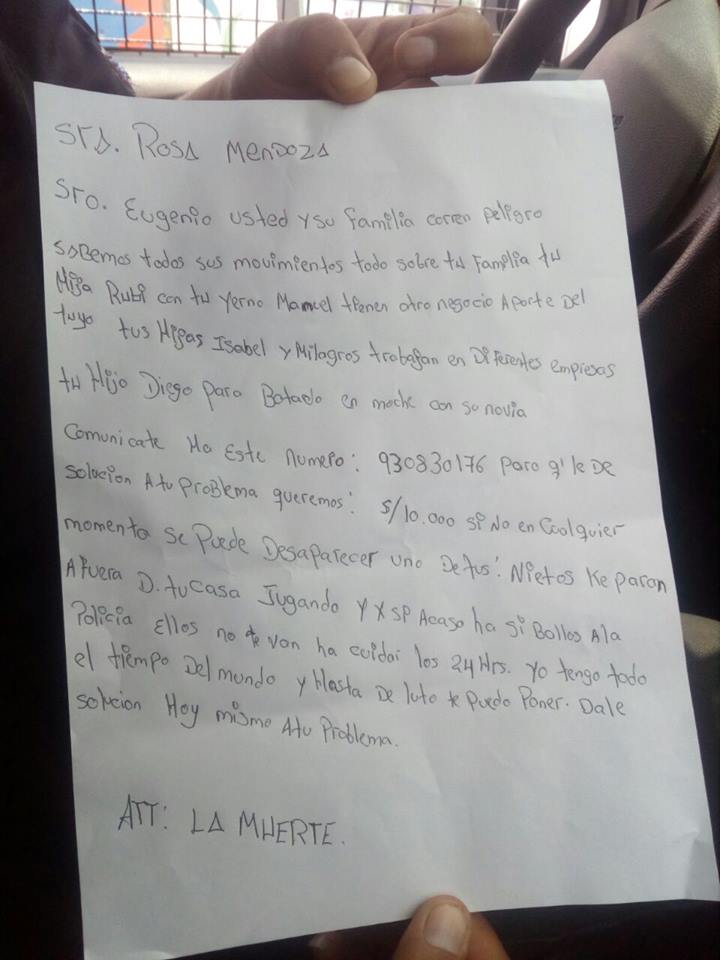 STA. ROSA MENDOZA
Sro. Eugenio usted y su familia corren peligro
SABemos todos sus movimientos todo sobre tu Familia tu
Hija Rubi con tu yerno Manuel tienen otro negocio Aporte Del
tuyo tus Higas Isabel y Milagros trabagan en Diferentes empresas
tu Hijo Diego para Botado en moche con su novia
Comunicate Ha Este numero: 930830176 Para q' le De
solucion A tu Problema queremos: S/10.000 si No en Coolquier
momento Se Puede Desaparecer uno De tus: Nietos Ke paran
Afuera D. tu Casa Jugando y x si Acaso ha si Bollos A la
Policia Ellos no te van ha cuidar los 24 Hrs. yo tengo todo
el tiempo Del mundo y Hasta De luto te Puedo Poner. Dale
solucion Hoy mismo A tu Problema.
ATT: LA MUERTE.